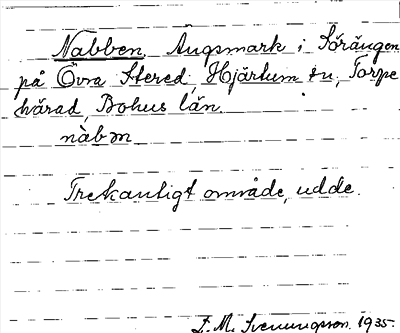 Nabben. Ängsmark i Sörängen
på Övra Stered, Hjärtum sn, Torpe
härad, Bohus län.
nàbm̥
Trekantigt område, udde.
F. M. Svenungsson. 1935.